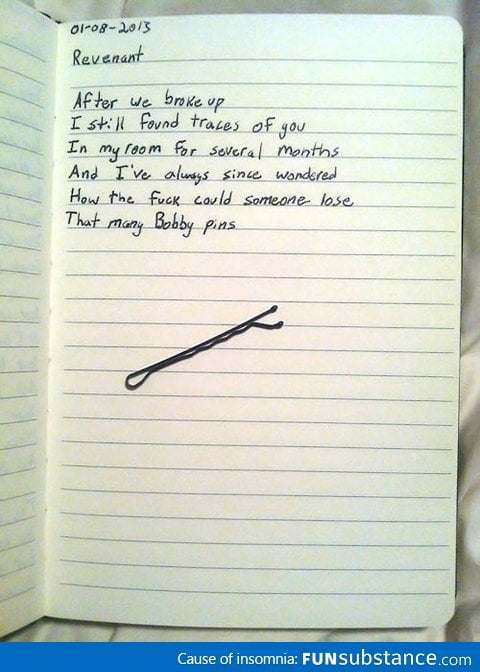 01-08-2013
Revenant
After we broke up
I still found traces of you
In my room for several months
And I've always since wondered
How the fuck could someone lose
That many Bobby pins
Cause of insomnia: FUNsubstance.com